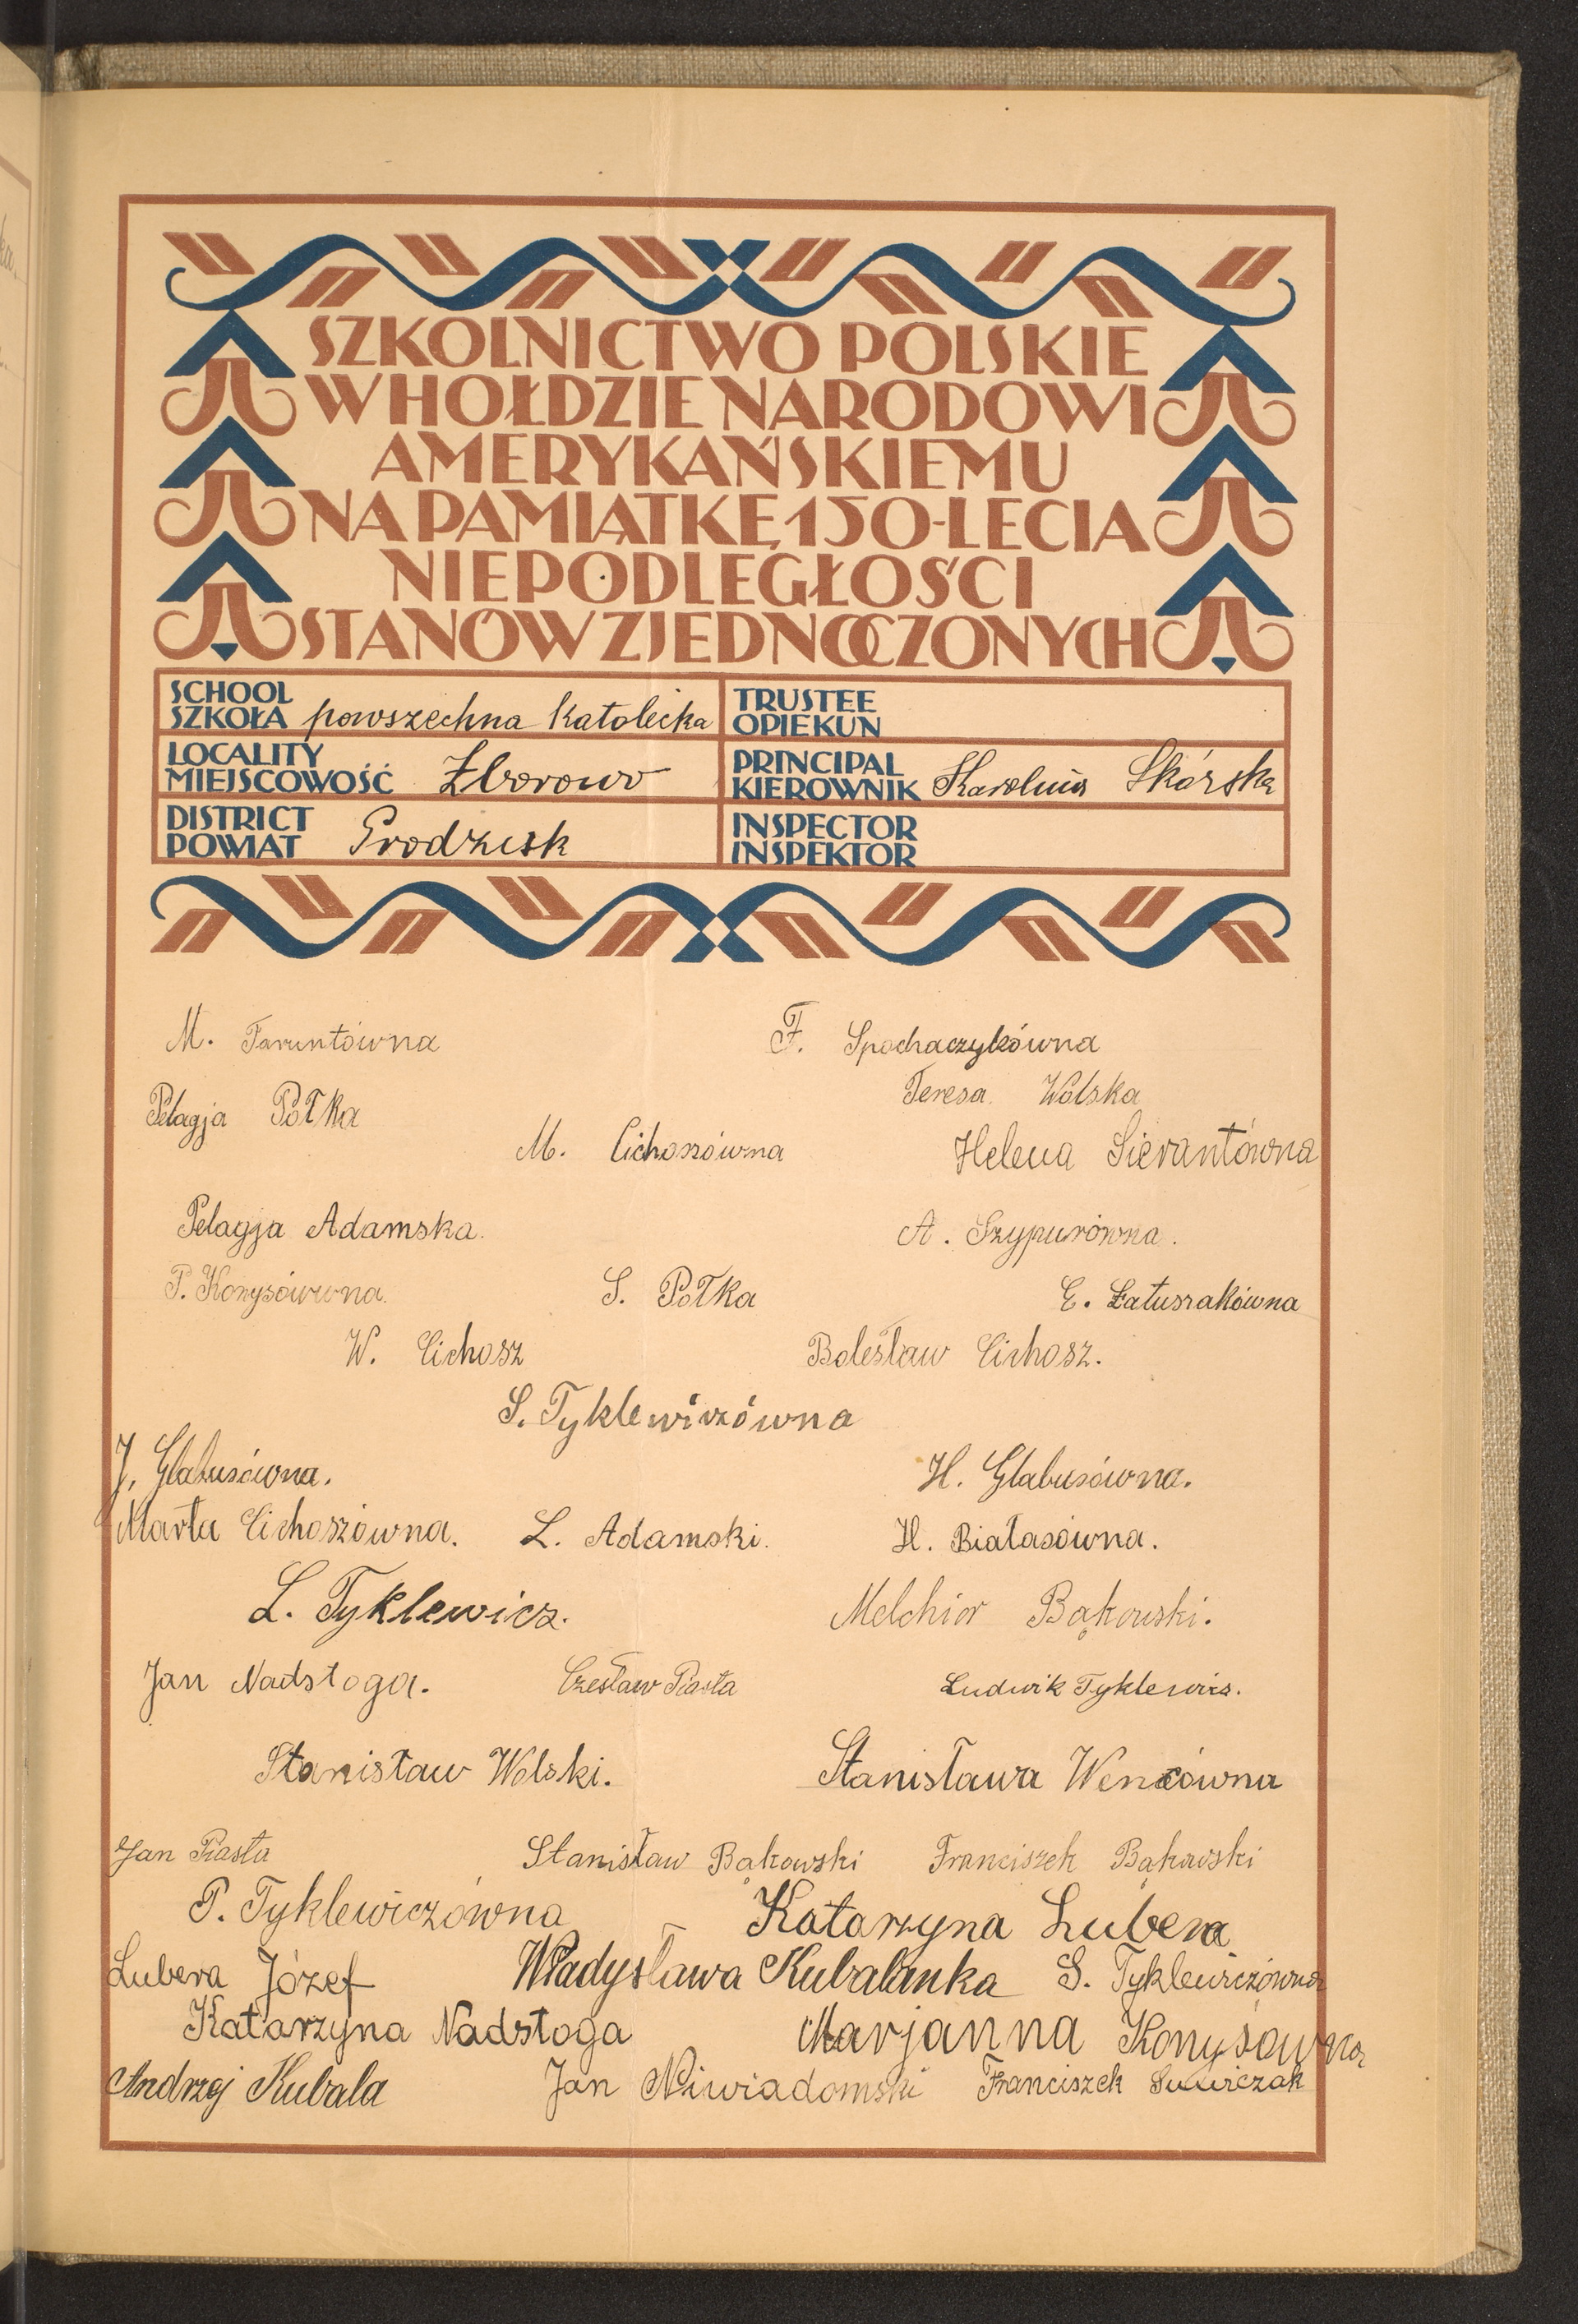 SZKOLNICTWO POLSKIE
W HOŁDZIE NARODOWI
AMERYKAŃSKIEMU
NA PAMIĄTKĘ 150-LECIA
NIEPODLEGŁOŚCI
STANÓW ZJEDNOCZONYCH
SCHOOL
SZKOŁA powszechna Katolicka
TRUSTEE
OPIEKUN
LOCALITY
MIEJSCOWOŚĆ Zborowo
PRINCIPAL
KIEROWNIK Karolina Skórska
DISTRICT
POWIAT Grodzisk
INSPECTOR
INSPEKTOR
M. Faruntówna
F. Spochaczykówna
Teresa Wolska
Pelagja Połka
M. Cichoszówna
Helena Sierantówna
Pelagja Adamska.
A. Szypurówna.
P. Konysówwna.
S. Połka
E. Łatuszakówna
W. Cichosz
Bolesław Cichosz.
S. Tyklewiczówna
J. Glabusówna.
H. Glabusówna.
Marta Cichoszówna.
L. Adamski.
H. Białasówna.
L. Tyklewicz.
Melchior Bąkowski.
Jan Nadstoga.
Czesław Piasta
Ludwik Tyklewics.
Stanisław Wolski.
Stanisława Wencówna
Jan Piasta
Stanisław Bąkowski
Franciszek Bąkowski
P. Tyklewiczówna
Katarzyna Lubera
Lubera Józef
Władysława Kubalanka
S. Tyklewiczówna
Katarzyna Nadstoga
Marjanna Konysówna
Andrzej Kubala
Jan Niwiadomski
Franciszek